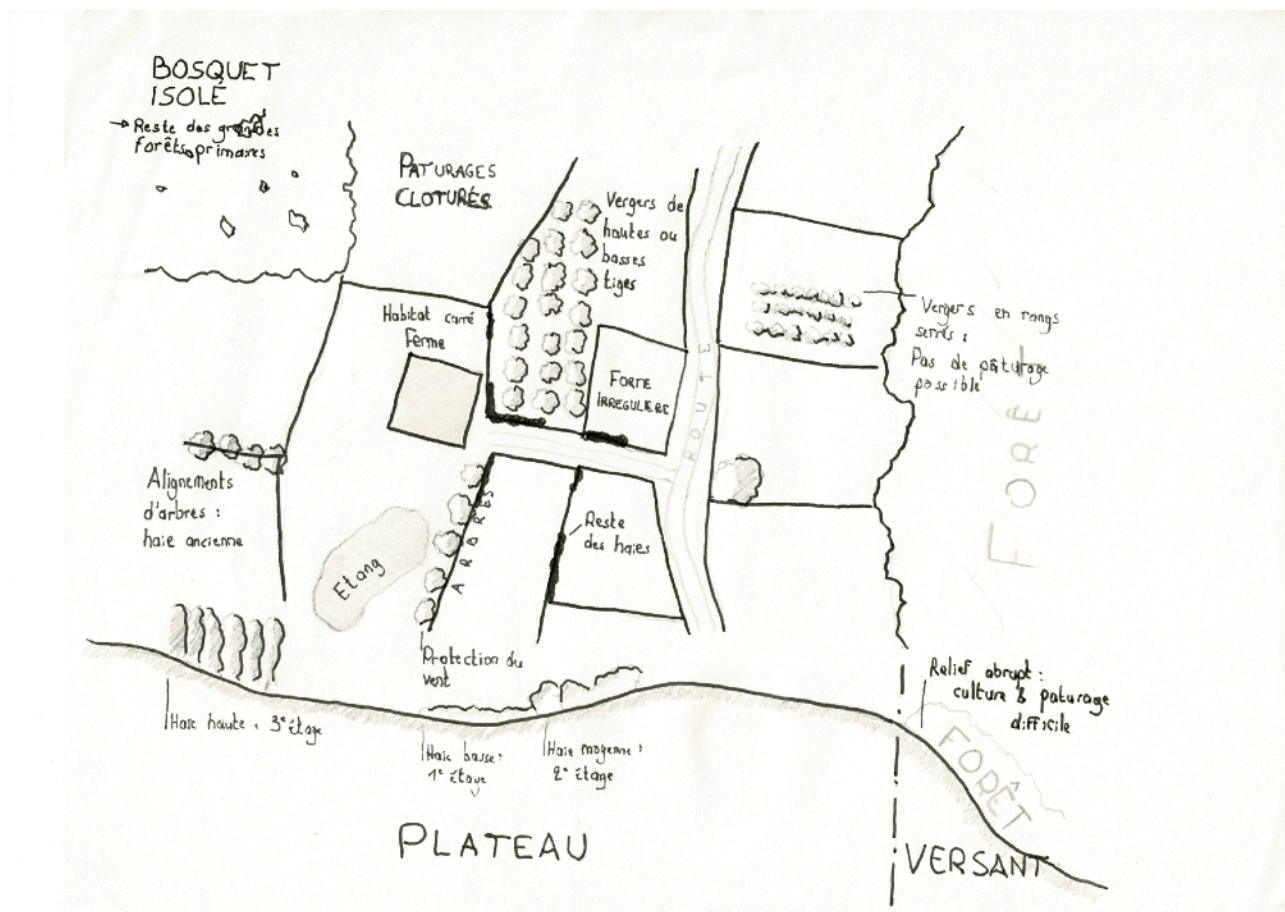 BOSQUET
ISOLÉ
Reste des grandes
forêts primaires
PATURAGES
CLOTURÉS
Vergers de
hautes ou
basses
tiges
Habitat carré
Ferme
FORME
IRREGULIERE
ROUTE
Vergers en rangs
serrés :
Pas de pâturage
possible
FORÊT
Alignements
d'arbres :
haie ancienne
Etang
ARBRES
Reste
des haies
Protection du
vent
Relief abrupt :
culture & paturage
difficile
Haie haute : 3e étage
Haie basse :
1e étage
Haie moyenne :
2e étage
FORÊT
PLATEAU
VERSANT